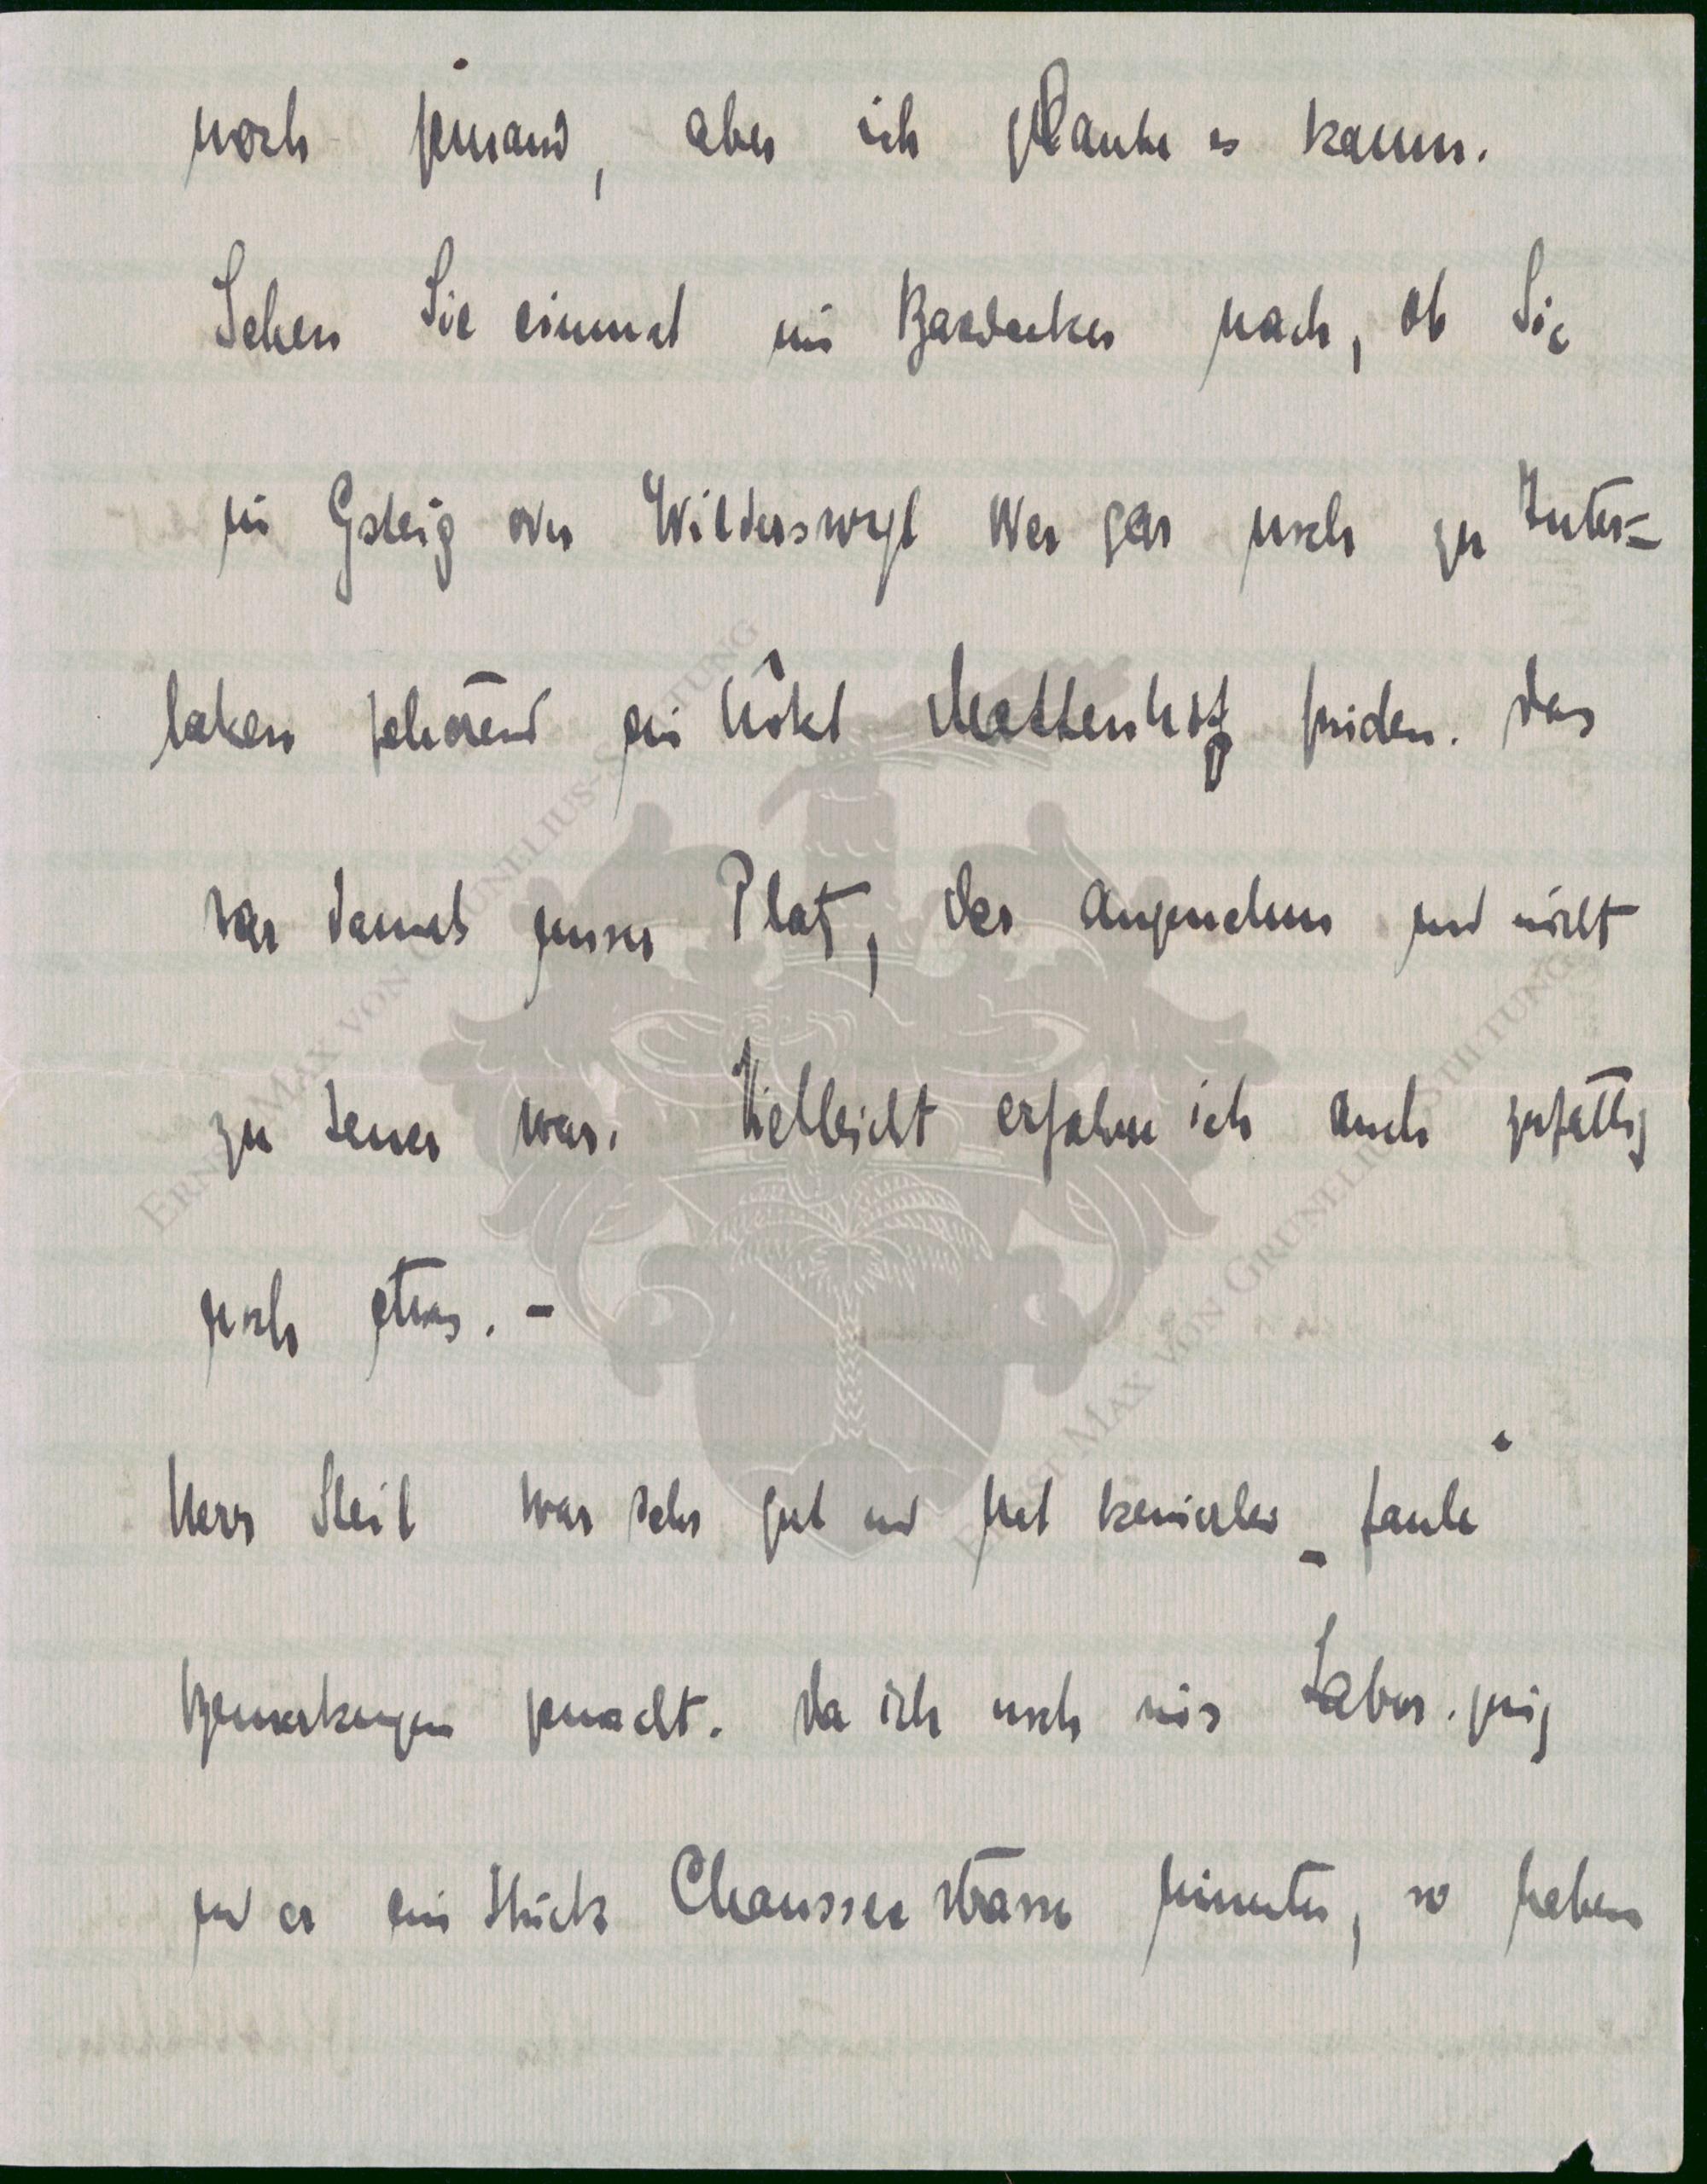 noch jemand, aber ich glaube es kaum.
Sehen Sie einmal im Baedecker nach, ob Sie
in Gsteig oder Wilderswyl oder gar noch zu Inter=
laken gehörend ein Hôtel Mattenhof finden. Das
war damals unser Platz, der angenehm und nicht
zu teuer war. Vielleicht erfahre ich auch zufällig
noch etwas. -
Herr Steil war sehr gut und hat keinerlei „faule“
Bemerkungen gemacht. Da ich noch ins Labor. ging
und er ein Stück Chausseestrasse hinunter, so haben
ERNST MAX VON GRUNELIUS-STIFTUNG
ERNST MAX VON GRUNELIUS-STIFTUNG